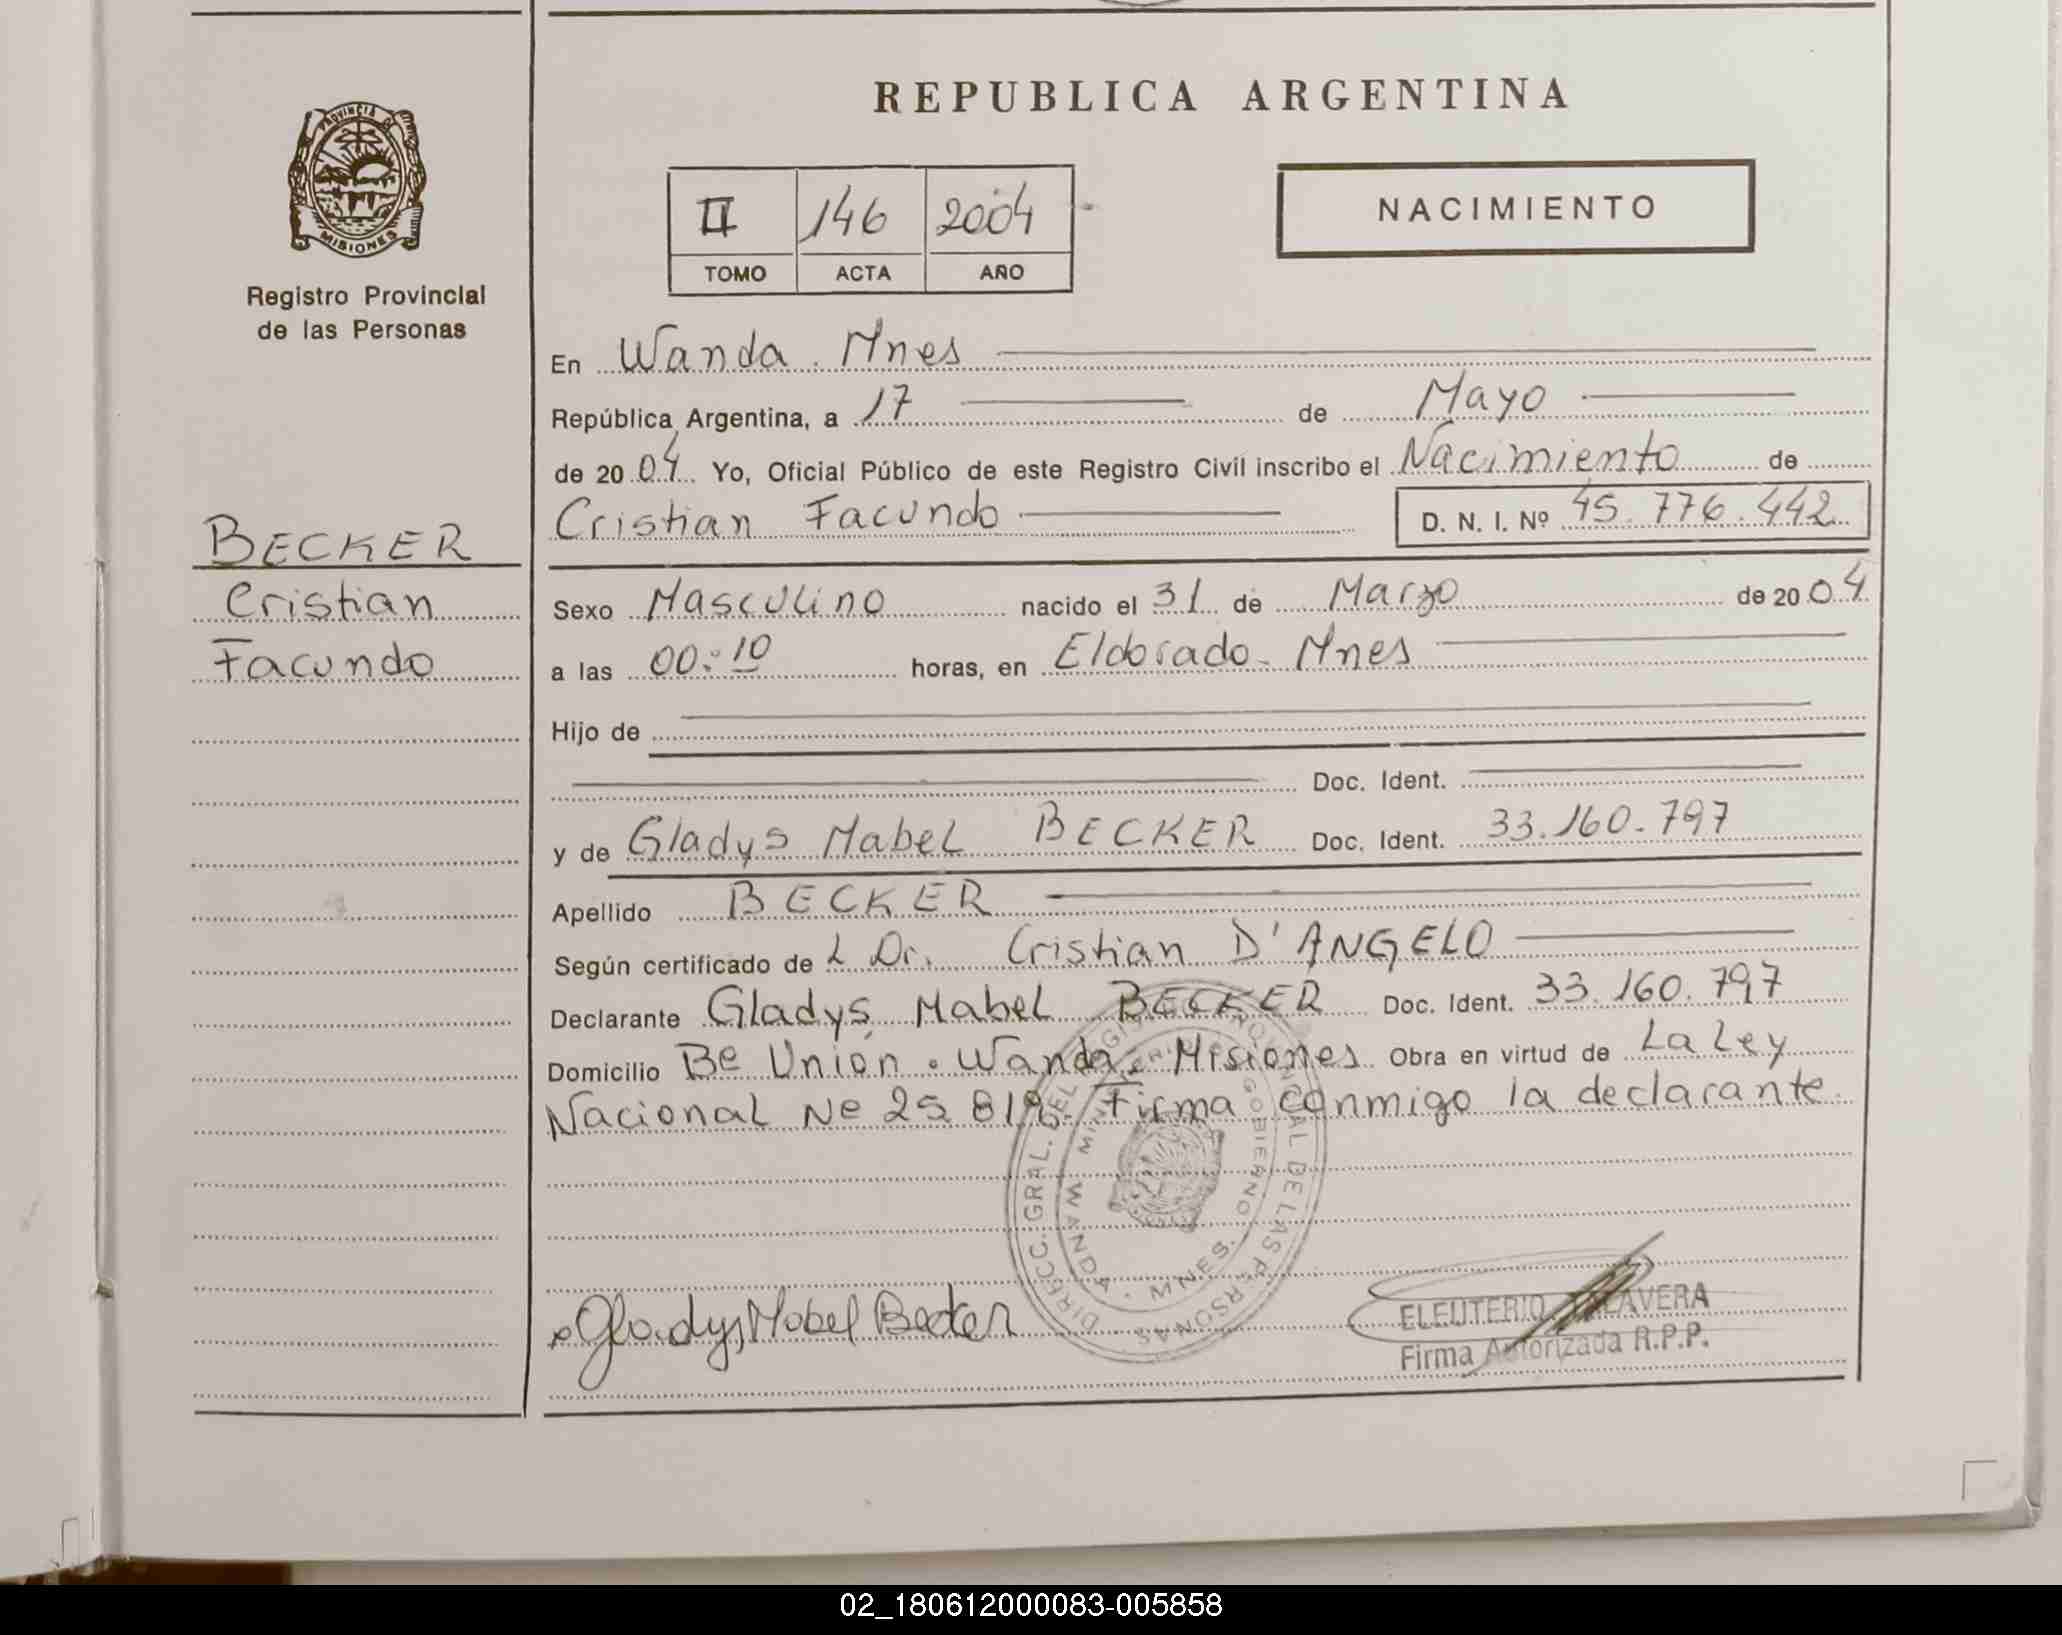 REPUBLICA ARGENTINA
PROVINCIA DE
MISIONES
Registro Provincial
de las Personas
II 146 2004
TOMO ACTA AÑO
NACIMIENTO
En Wanda. Mnes
República Argentina, a 17 de Mayo
de 2004 Yo, Oficial Público de este Registro Civil inscribo el Nacimiento de
Cristian Facundo D. N. I. Nº 45.776.442
BECKER
Cristian
Facundo
Sexo Masculino nacido el 31 de Marzo de 2004
a las 00:10 horas, en Eldorado - Mnes
Hijo de
Doc. Ident.
y de Gladys Mabel BECKER Doc. Ident. 33.160.797
Apellido BECKER
Según certificado de L Dr. Cristian D'ANGELO
Declarante Gladys Mabel BECKER Doc. Ident. 33.160.797
Domicilio Be Unión. Wanda, Misiones. Obra en virtud de La Ley
Nacional Ne 25.819. Firma conmigo la declarante.
DIRECC. GRAL. DEL REGISTRO PROVINCIAL DE LAS PERSONAS
MINISTERIO GOBIERNO
WANDA - MNES.
Gladys Mabel Becker
ELEUTERIO TALAVERA
Firma Autorizada R.P.P.
02_180612000083-005858